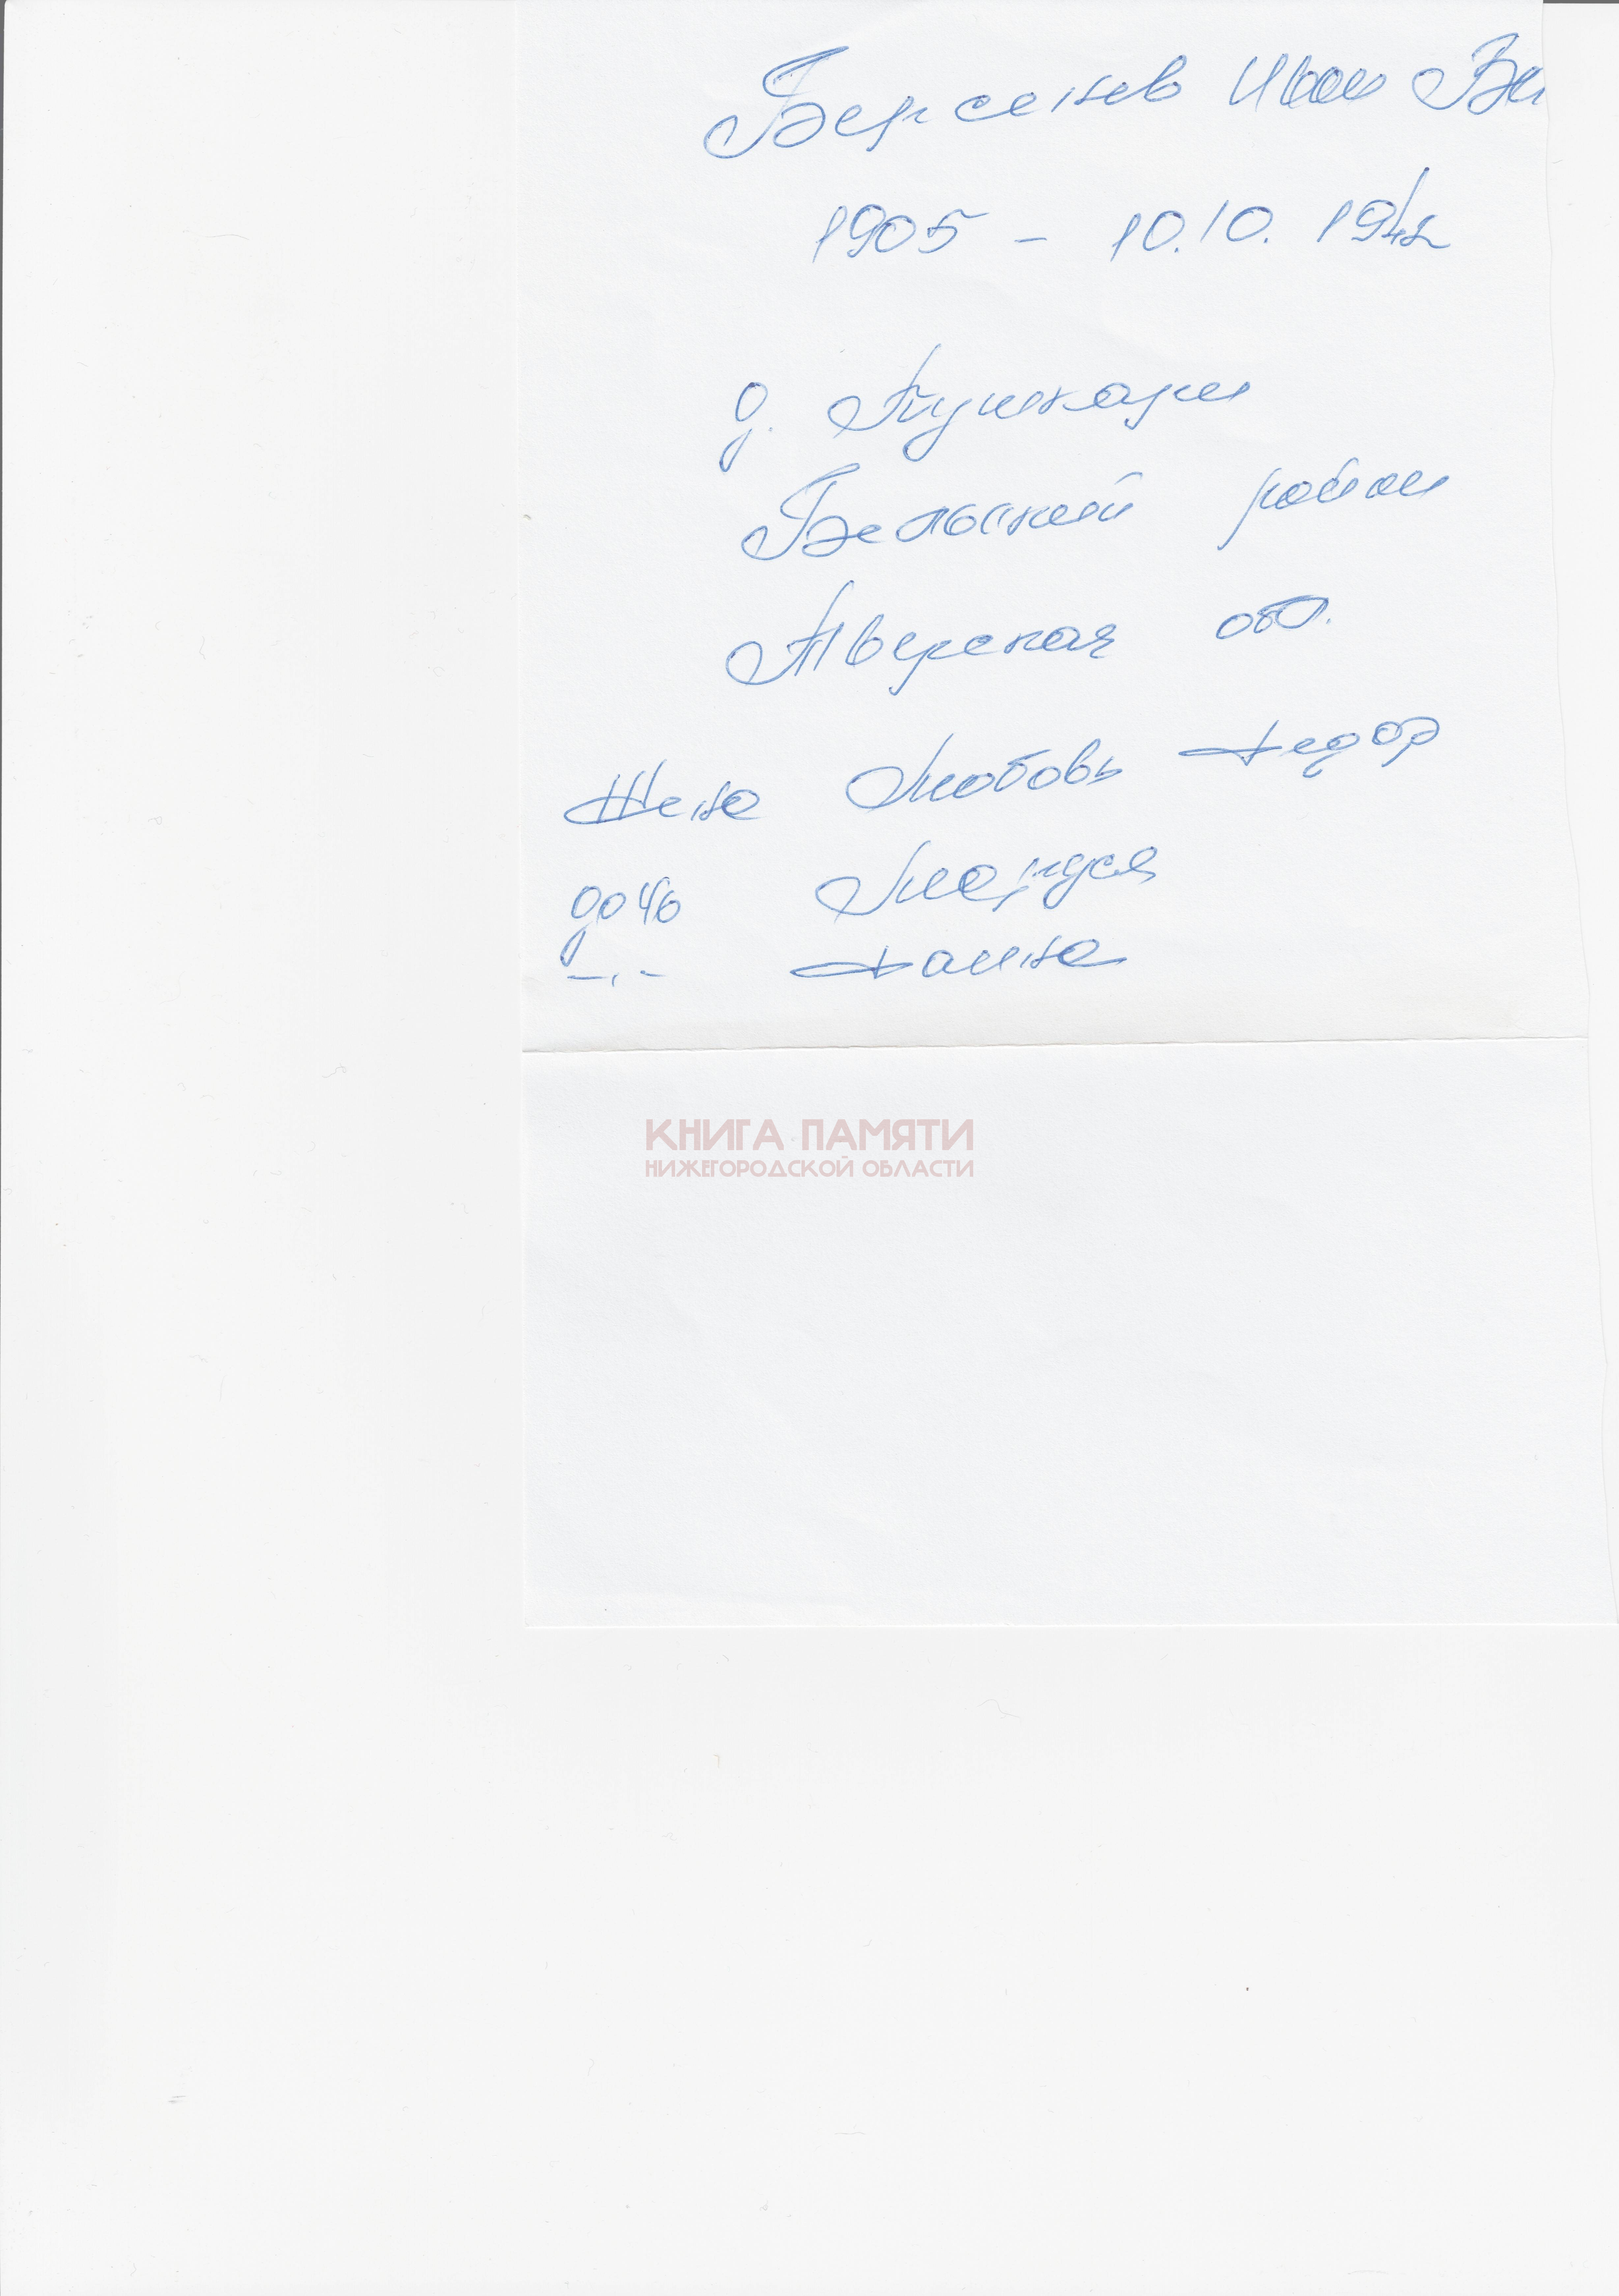 Берсенев Иван Ви
1905 - 10.10. 1942
д. Пушкари
Бельский район
Тверская обл.
Жена Любовь Федор
дочь
-"- Фаина
КНИГА ПАМЯТИ
НИЖЕГОРОДСКОЙ ОБЛАСТИ